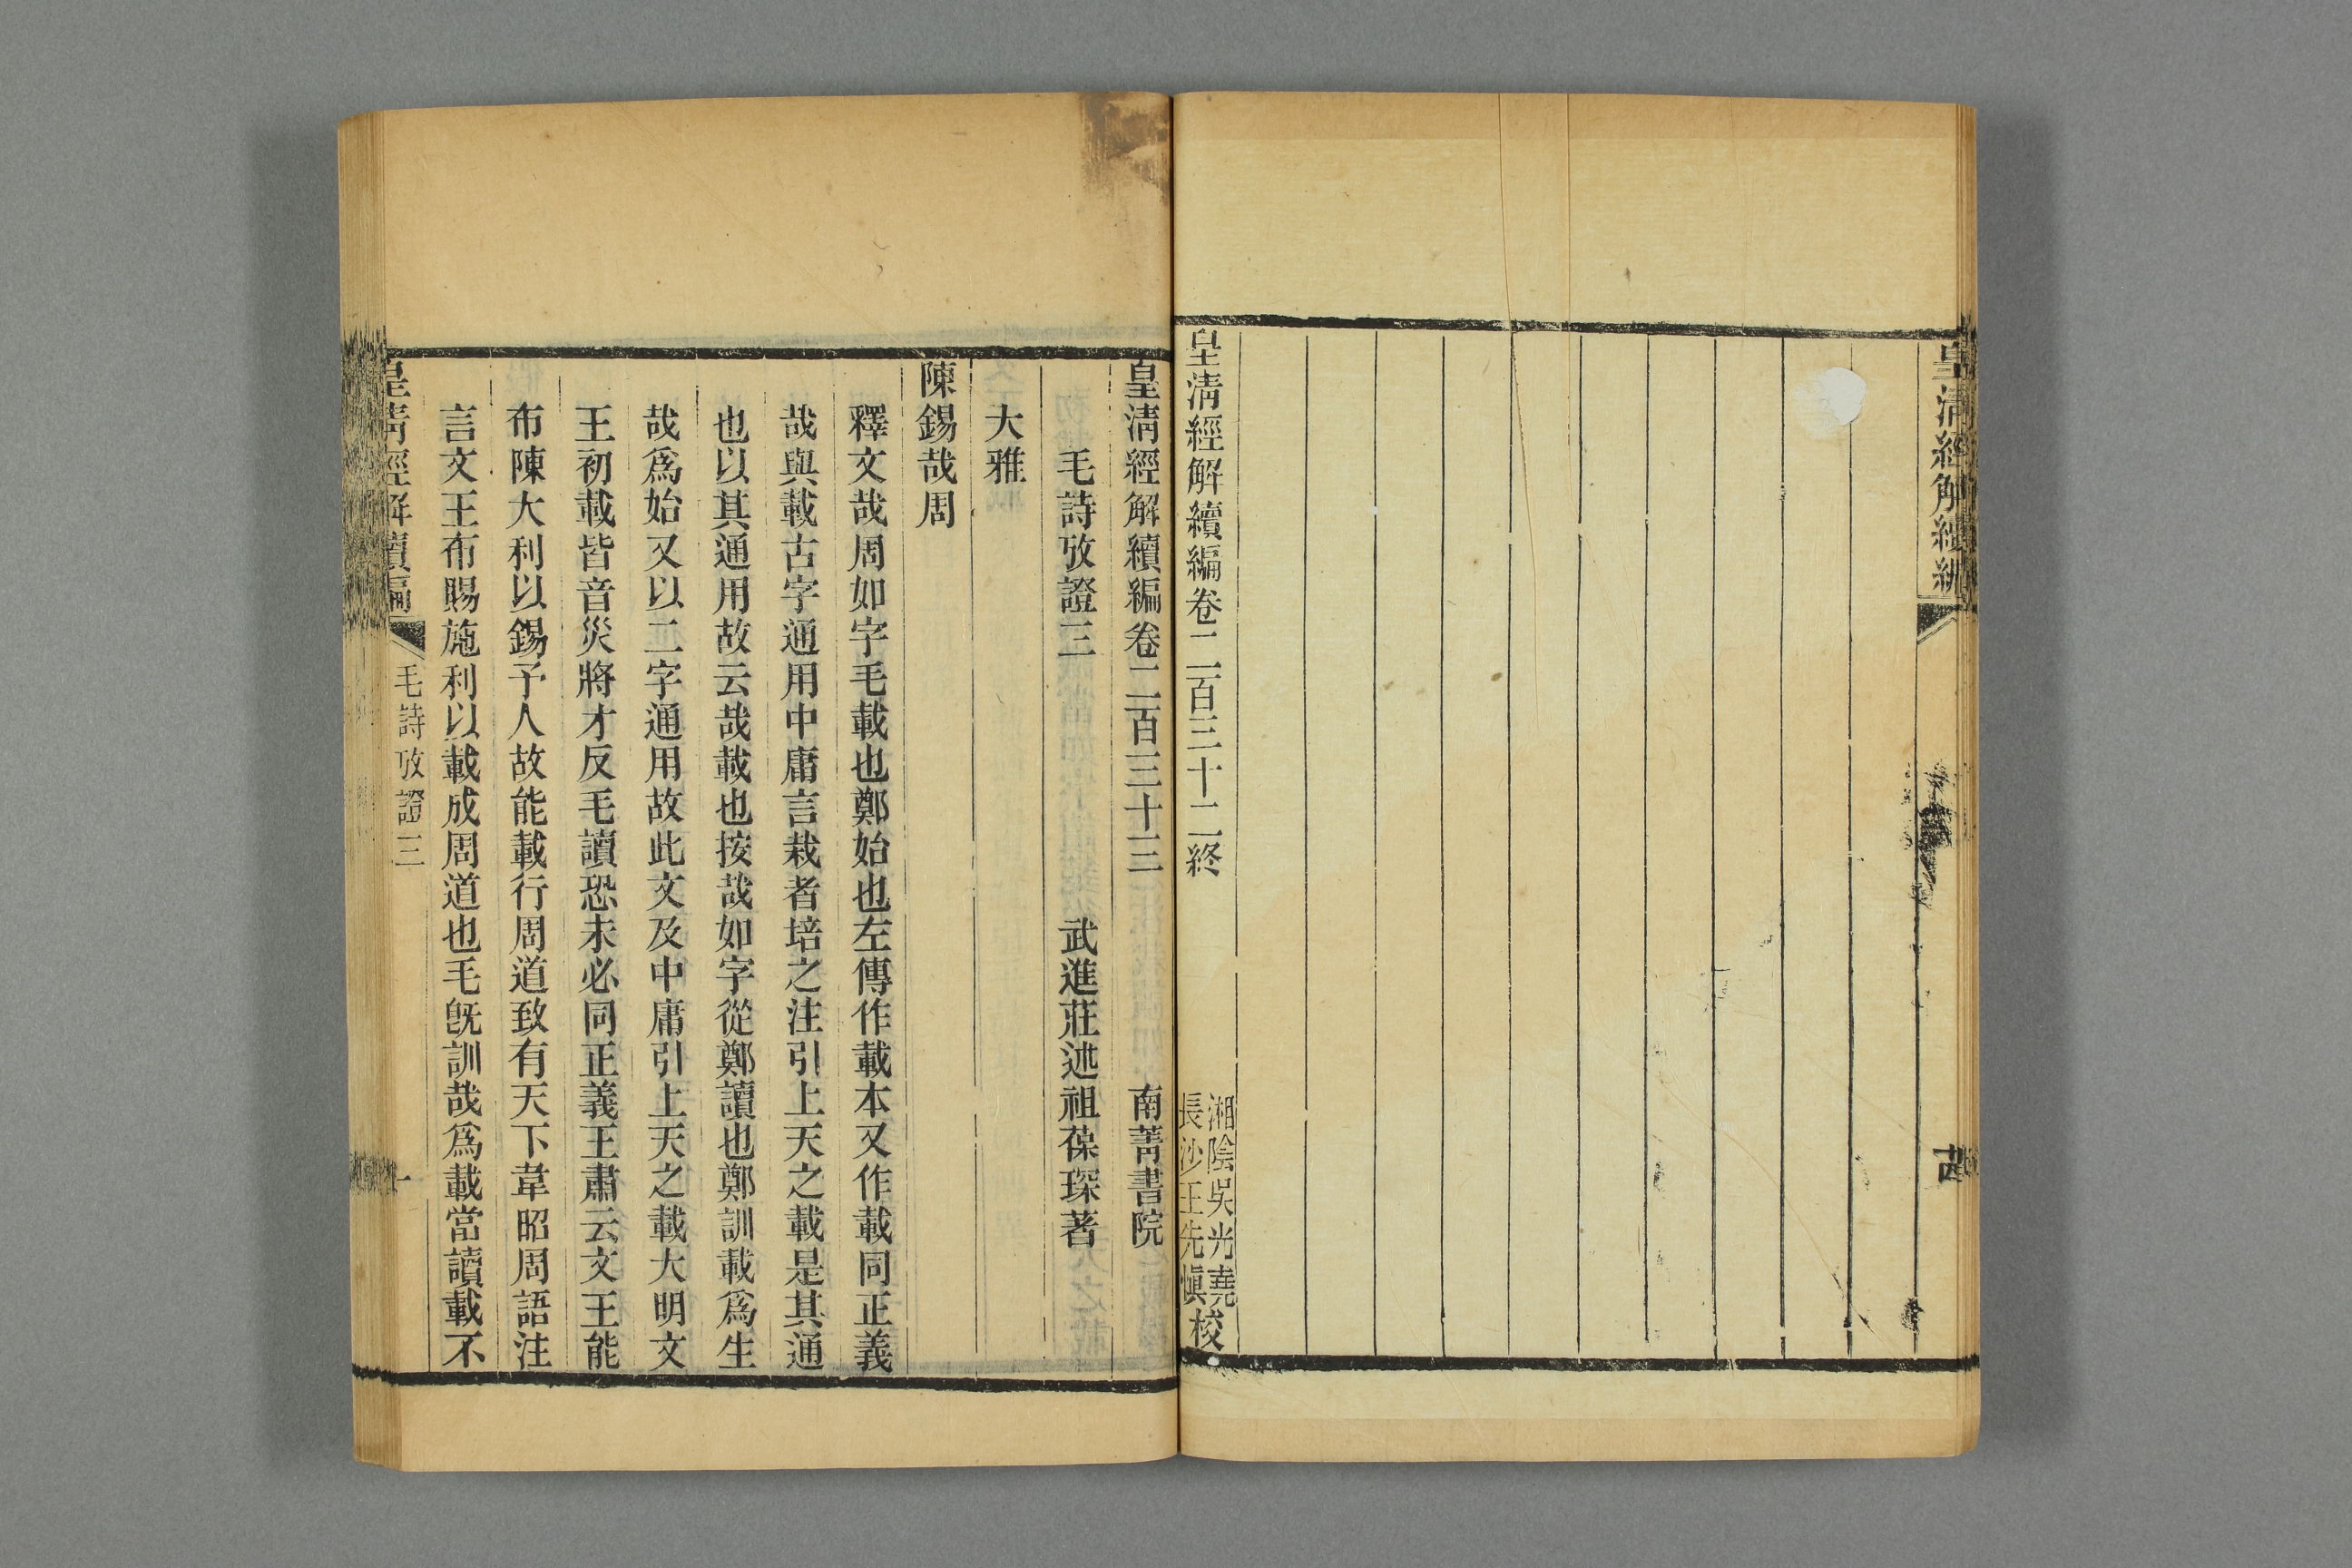 皇清經解續編
皇清經解續編卷二百三十二終
湘陰吳光堯
長沙王先愼
校
皇清經解續編卷二百三十三 南菁書院
毛詩攷證三 武進莊述祖葆琛著
大雅
陳錫哉周
釋文哉周如字毛載也鄭始也左傳作載本又作載同正義
哉與載古字通用中庸言栽者培之注引上天之載是其通
也以其通用故云哉載也按哉如字從鄭讀也鄭訓載爲生
哉爲始又以二字通用故此文及中庸引上天之載大明文
王初載皆音災將才反毛讀恐未必同正義王肅云文王能
布陳大利以錫予人故能載行周道致有天下韋昭周語注
言文王布賜施利以載成周道也毛旣訓哉爲載當讀載不
皇清經解續編
毛詩攷證三
一